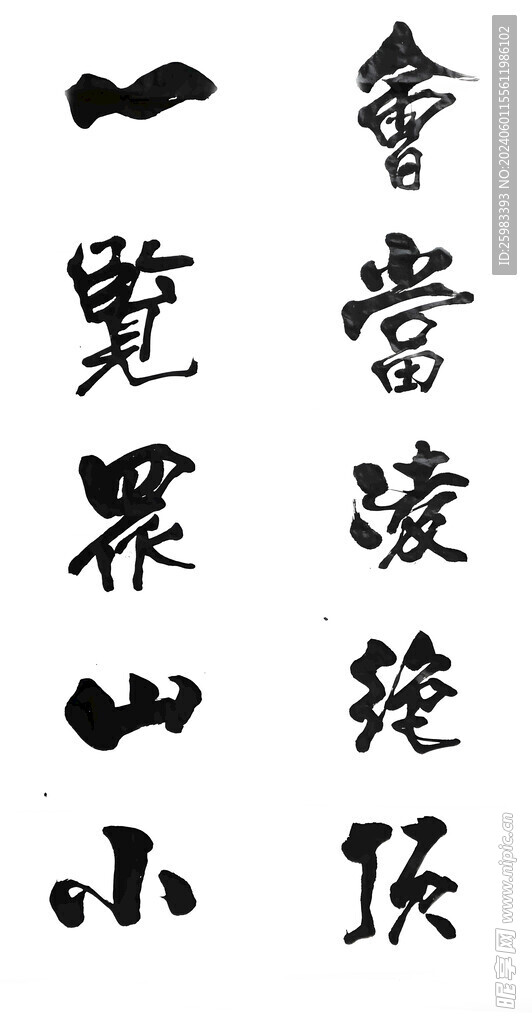 會當凌绝顶
一覽眾山小
ID:25983393 NO:20240601155611986102
昵享网 www.nipic.cn